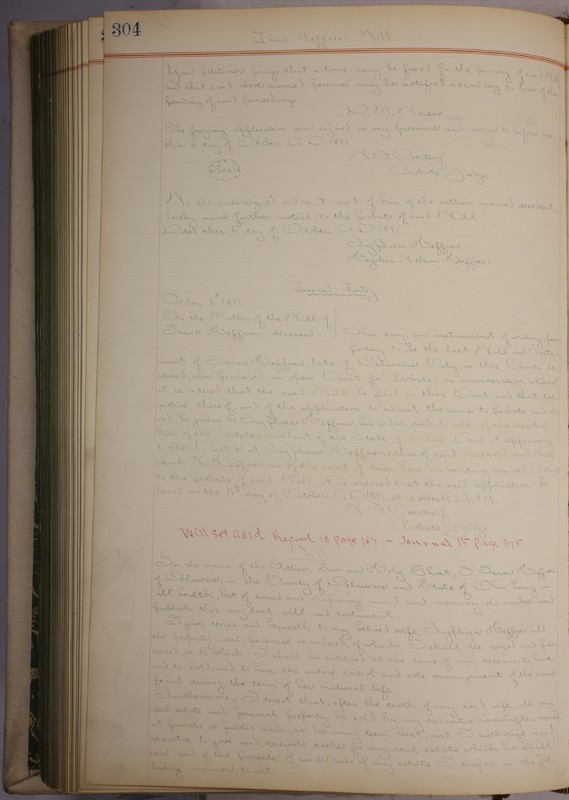 304
Isaac Heffner's Will
Your petitioner prays that a time may be fixed for the proving of said Will
and that said above named persons may be notified according to law of the
pending of said proceedings.
The forgoing application was signed in my presence and sworn to before me
this 6 day of October A.D. 1891.
Probate Judge
Seal
We, the undersigned widow & next of kin of the within named decedent,
hereby waive further notice to the probate of said Will
Dated this 6 day of October A.D. 1891
Heffner
Heffner.
Journal Entry
October 6th 1891.
In the Matter of the Will of
Isaac Heffner deceased
This day, an instrument of writing pur
porting to be the last Will and Testa
ment of Isaac Heffner, late of Delaware City, in this County de
ceased, was produced in open Court for Probate, on consideration whereof
it is ordered that the said Will be filed in this Court, and that due
notice thereof, and of the application to admit the same to Probate and
be given to Heffner his widow, and to all of the next of
kin of the testator resident of the State of Ohio. And it appearing
to the Court that Heffner widow of said deceased, and
Heffner one of the next of kin have in writing waived notice
to the probate of said Will it is ordered that the said application be
heard on the day of October A.D. 1891, at 10 o'clock A.M.
Probate Judge
Will Set Aside Record 10 page 167 - Journal 15 Page 375
Will
In the name of the Father, Son and Holy Ghost, I, Isaac Heffner
of Delaware, in the County of Delaware and State of Ohio being in
ill health, but of sound and disposing mind and memory, do make and
publish this my last will and testament.
I give, devise and bequeath to my beloved wife, Heffner all
the property, real personal or mixed, of which I shall die seized and pos
sessed or to which I shall be entitled at the time of my decease, to have
and to hold and to have the entire control and sole management of the same
for and during the term of her natural life
Furthermore, I direct that, after the death of my said wife, all my
real estate and personal property be sold by my executor hereinafter named
at private or public sale, as he may deem best, and I authorize said
executor to give and execute deeds for any real estate which he shall
sell, and of the proceeds of such sale of my estate I dispose in the fol
lowing manner, to wit: